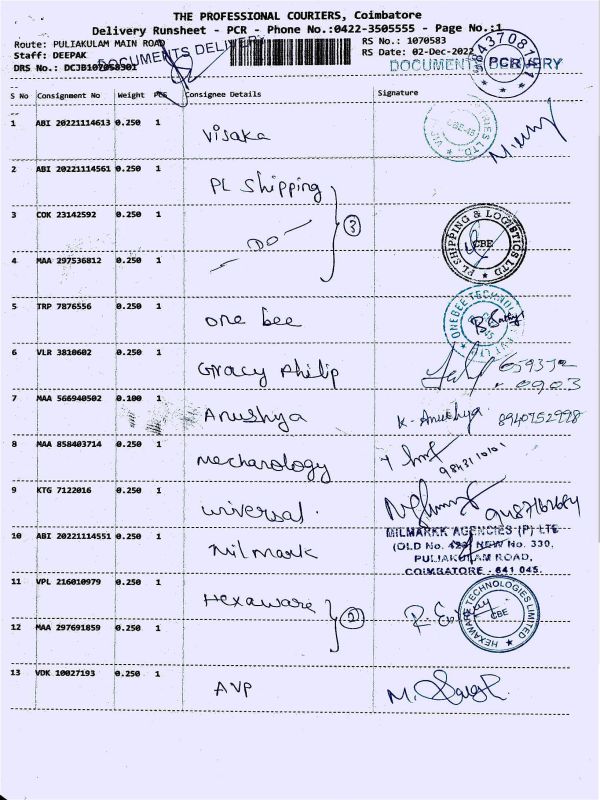 THE PROFESSIONAL COURIERS, Coimbatore
Delivery Runsheet - PCR - Phone No.:0422-3505555 - Page No.:1
Route: PULIAKULAM MAIN ROAD
RS No.: 1070583
Staff: DEEPAK
RS Date: 02-Dec-2022
DRS No.: DCJB107058301
DOCUMENTS DELIVERY
PCR
S No Consignment No Weight PCS Consignee Details Signature
1 ABI 20221114613 0.250 1 Visaka
2 ABI 20221114561 0.250 1 PL Shipping
3 COK 23142592 0.250 1 - DO - 3
PL SHIPPING & LOGISTICS LTD CBE
4 MAA 297536812 0.250 1
5 TRP 7876556 0.250 1 one bee
6 VLR 3810602 0.250 1 Gracy Philip
7 MAA 566940502 0.100 1 Anushya K- Anushya 8940752998
8 MAA 858403714 0.250 1 Mechanology 9843110101
9 KTG 7122016 0.250 1 universal.
10 ABI 20221114551 0.250 1 Milmark
MILMARKK AGENCIES (P) LTD
(OLD No. NEW No. 330,
PULIAKULAM ROAD,
COIMBATORE - 641 045.
11 VPL 216010979 0.250 1 Hexaware 2
HEXAWARE TECHNOLOGIES LIMITED CBE
12 MAA 297691859 0.250 1
13 VDK 10027193 0.250 1 AVP